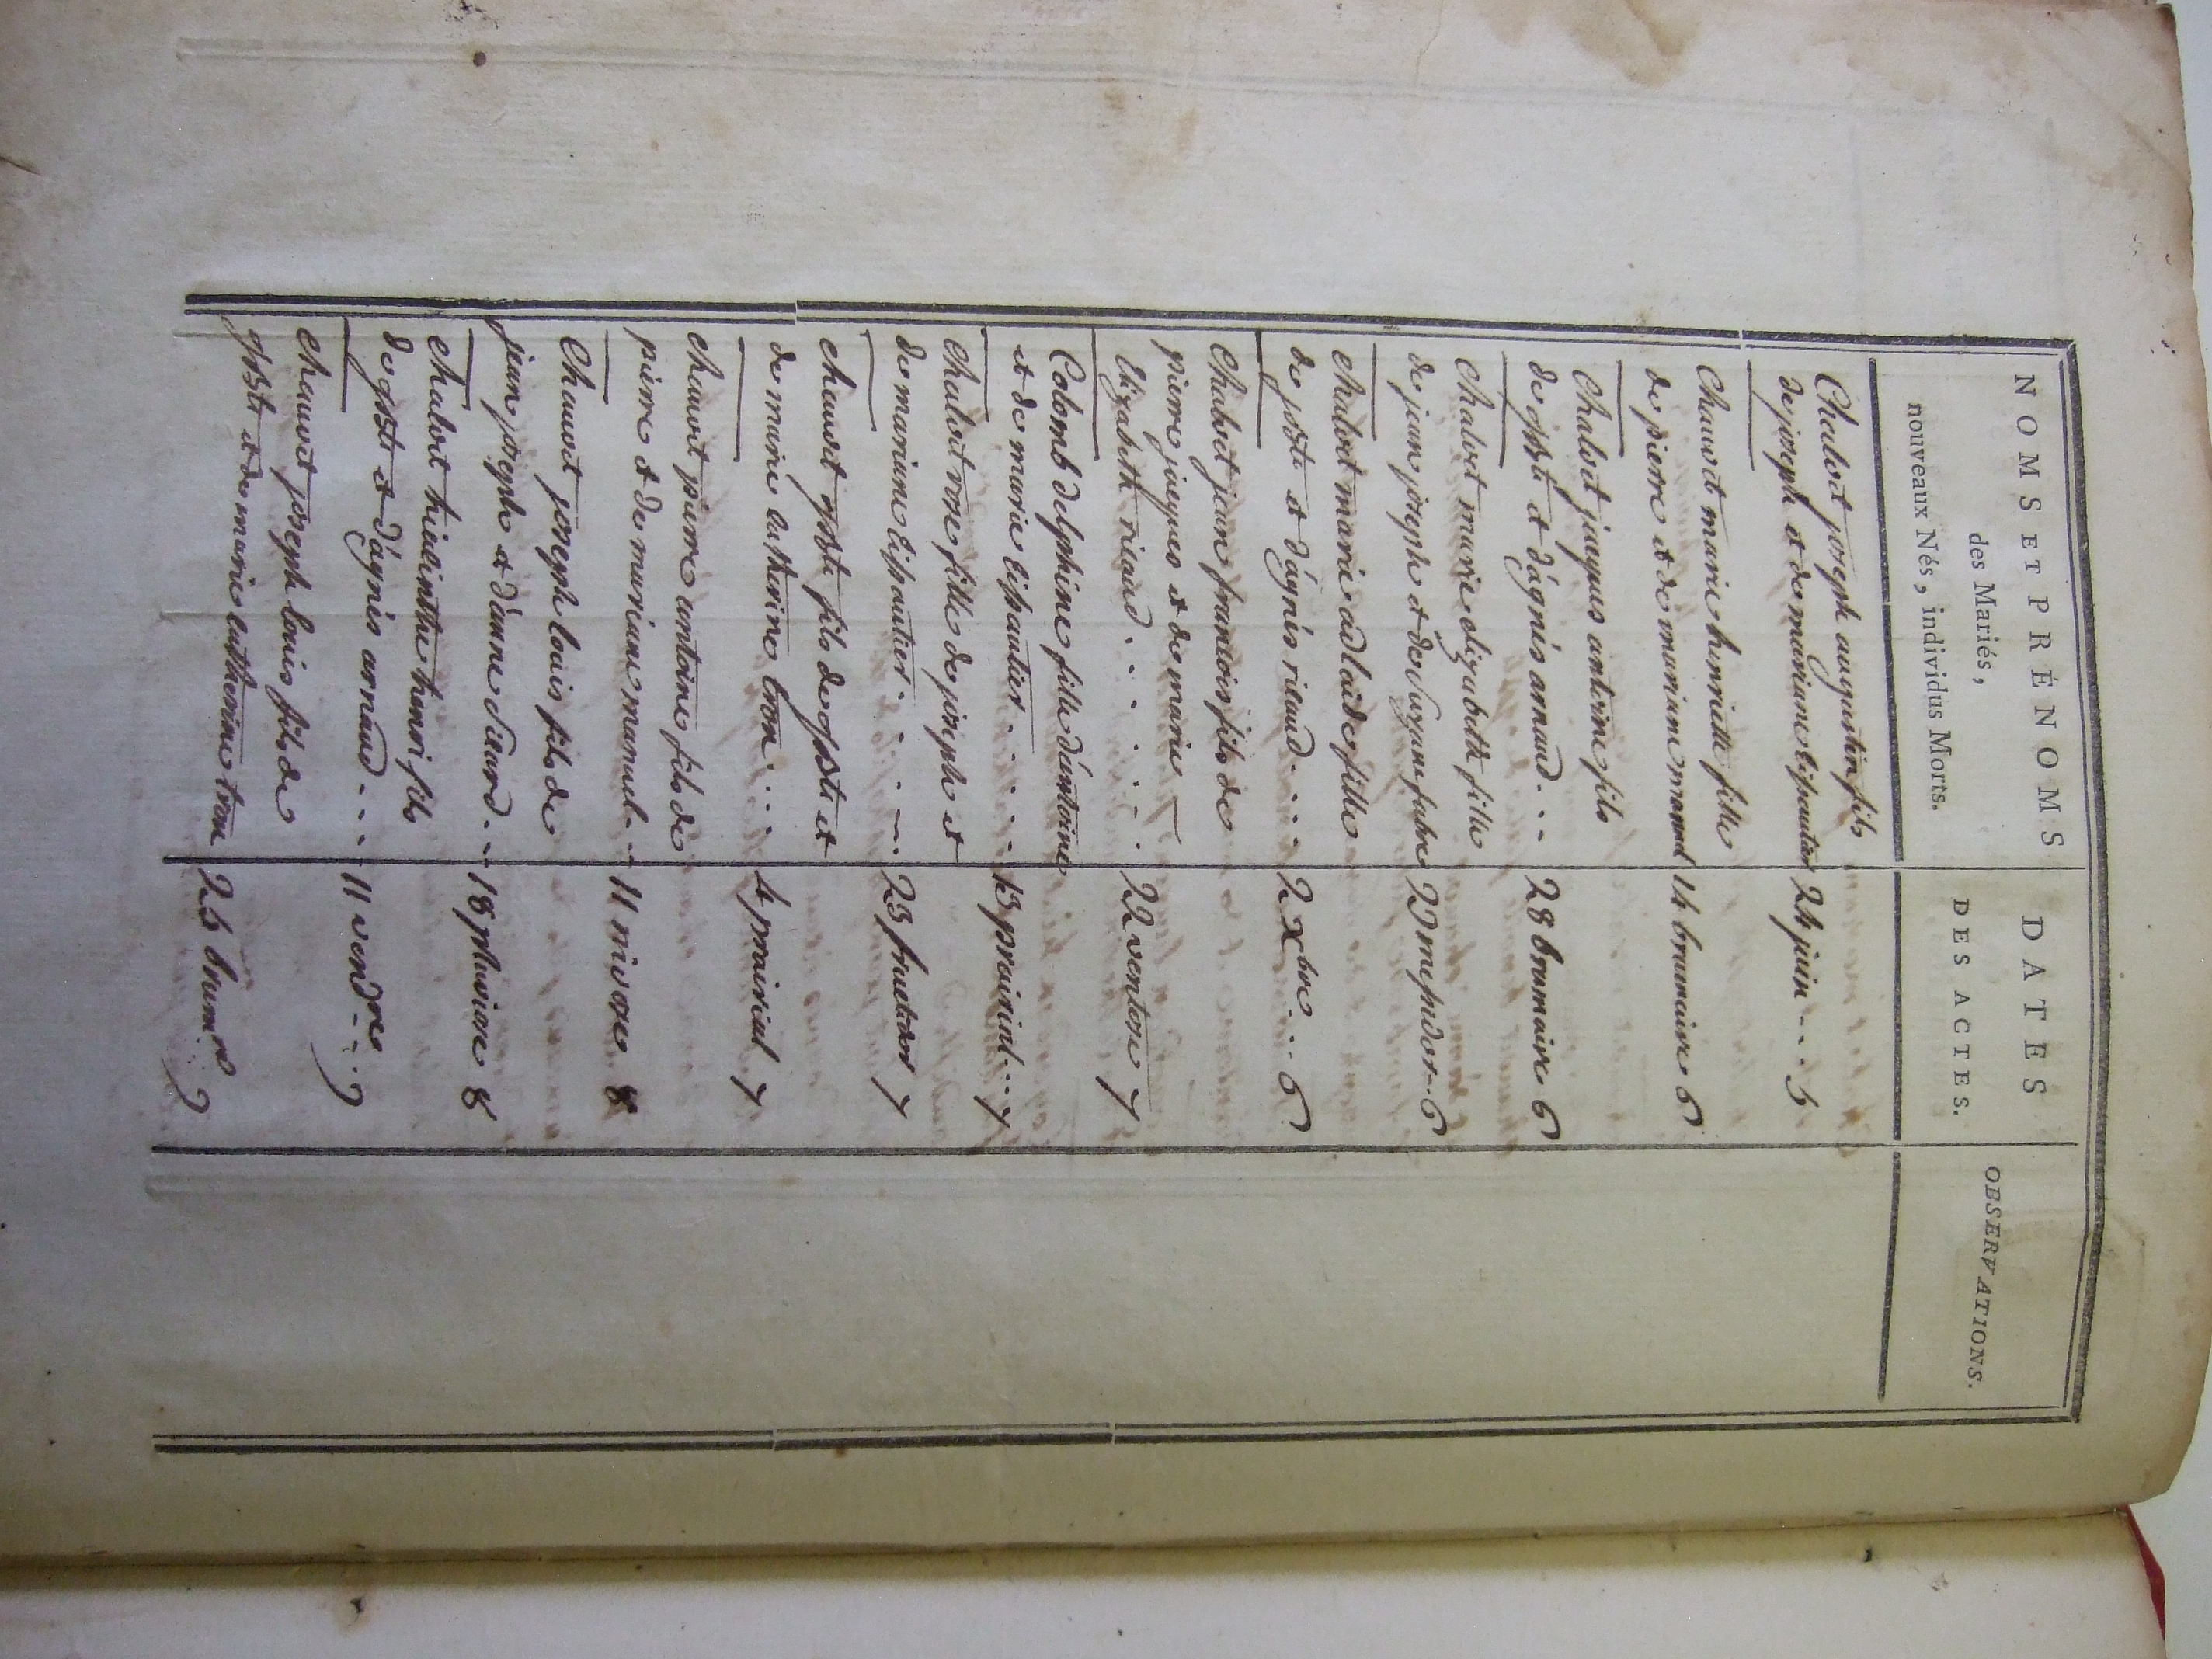 NOMS ET PRÉNOMS
des Mariés,
nouveaux Nés, individus Morts.
DATES
DES ACTES.
OBSERVATIONS.
Chalvet joseph augustin fils
de joseph et de mariane lipautier 24 juin . . . 5
Chauvet marie henriette fille
de pierre et de mariane manuel 14 brumaire 6
Chalvet jaques antoine fils
de jbte et d'agnés arnaud . . 28 brumaire 6
Chalvet marie elizabeth fille
de jean joseph et de Suzane fabre 29 messidor . . 6
Chalvet marie adlaide fille
de jbte et d'agnés ricaud . . . . 2 Xbre . . . 6
Chalvet jean francois fils de
pierre jacques et de marie
Elizabeth ricaud . . . . . . . 22 ventose 7
Colomb delphine fille d'antoine
et de marie lipautier . . . . . 13 prairial . . . 7
Chalvet rose fille de joseph et
de mariane lipautier . . . . . 23 fructidor 7
Chauvet jbte fils de jbte et
de marie catherine tron . . . 4 prairial 7
Chauvet pierre antoine fils de
pierre et de mariane manuel . . 11 nivose 8
Chauvet joseph louis fils de
jean joseph et d'anne . . 18 pluviose 8
Chalvet hiacinthe henri fils
de jbte et d'agnés arnaud . . . 11 vendre . . . 9
Chauvet joseph louis fils de
jbte et de marie catherine tron 25 brumre 9